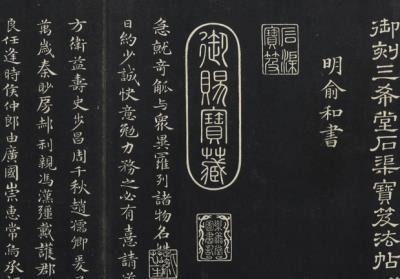 御刻三希堂石渠寶笈法帖
明俞和書
石渠寶笈
御賜寶藏
急就奇觚与眾異羅列諸物名
日約少誠快意勉力務之必有憙請
方衛益壽史步昌周千秋趙孺卿爰
萬歲秦眇房郝利親馮漢彊戴護郡
良任逢時侯仲郎由廣國崇惠常烏承